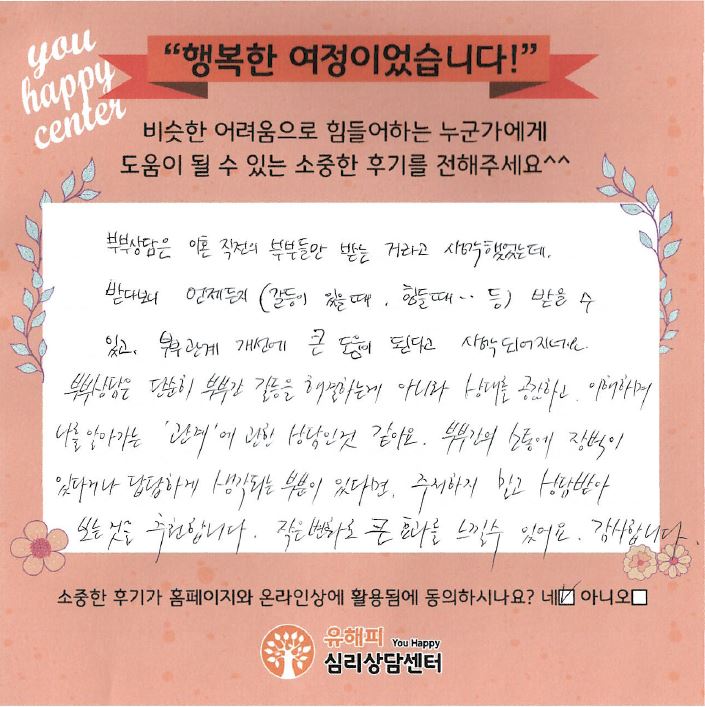 you
happy
center
“행복한 여정이었습니다!”
비슷한 어려움으로 힘들어하는 누군가에게
도움이 될 수 있는 소중한 후기를 전해주세요^^
부부상담은 이혼 직전의 부부들만 받는 거라고 생각했었는데,
받다보니 언제든지 (갈등이 있을때, 힘들때.. 등) 받을 수
있고, 부부관계 개선에 큰 도움이 된다고 생각되어지네요.
부부상담은 단순히 부부간 갈등을 해결하는게 아니라 상대를 공감하고, 이해하며
나를 알아가는 '관계'에 관한 상담인것 같아요. 부부간의 소통에 장벽이
있다거나 답답하게 생각되는 부분이 있다면, 주저하지 말고 상담받아
보는것을 추천합니다. 작은변화로 큰 효과를 느낄수 있어요. 감사합니다.
소중한 후기가 홈페이지와 온라인상에 활용됨에 동의하시나요? 네☑ 아니오☐
유해피 You Happy
심리상담센터